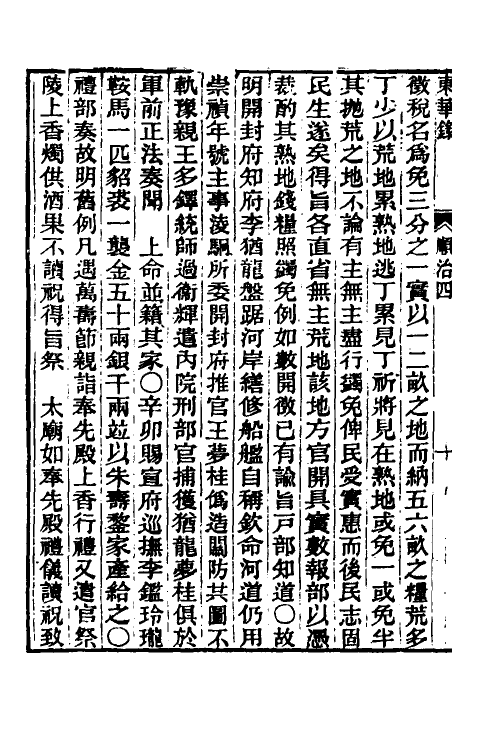 東華錄 順治四 十
徵稅名爲免三分之一實以一二畝之地而納五六畝之糧荒多
丁少以荒地累熟地逃丁累見丁祈將見在熟地或免一或免半
其拋荒之地不論有主無主盡行蠲免俾民受實惠而後民志固
民生遂矣得旨各直省無主荒地該地方官開具實數報部以憑
裁酌其熟地錢糧照蠲免例如數開徵已有諭旨戶部知道○故
明開封府知府李猶龍盤踞河岸繕修船艦自稱欽命河道仍用
崇禎年號主事淩駉所委開封府推官王夢桂僞造關防其圖不
軌豫親王多鐸統師過衞輝遣內院刑部官捕獲猶龍夢桂俱於
軍前正法奏聞 上命並籍其家○辛卯賜宣府巡撫李鑑玲瓏
鞍馬一匹貂裘一襲金五十兩銀千兩並以朱壽鏊家產給之○
禮部奏故明舊例凡遇萬壽節親詣奉先殿上香行禮又遣官祭
陵上香燭供酒果不讀祝得旨祭 太廟如奉先殿禮儀讀祝致